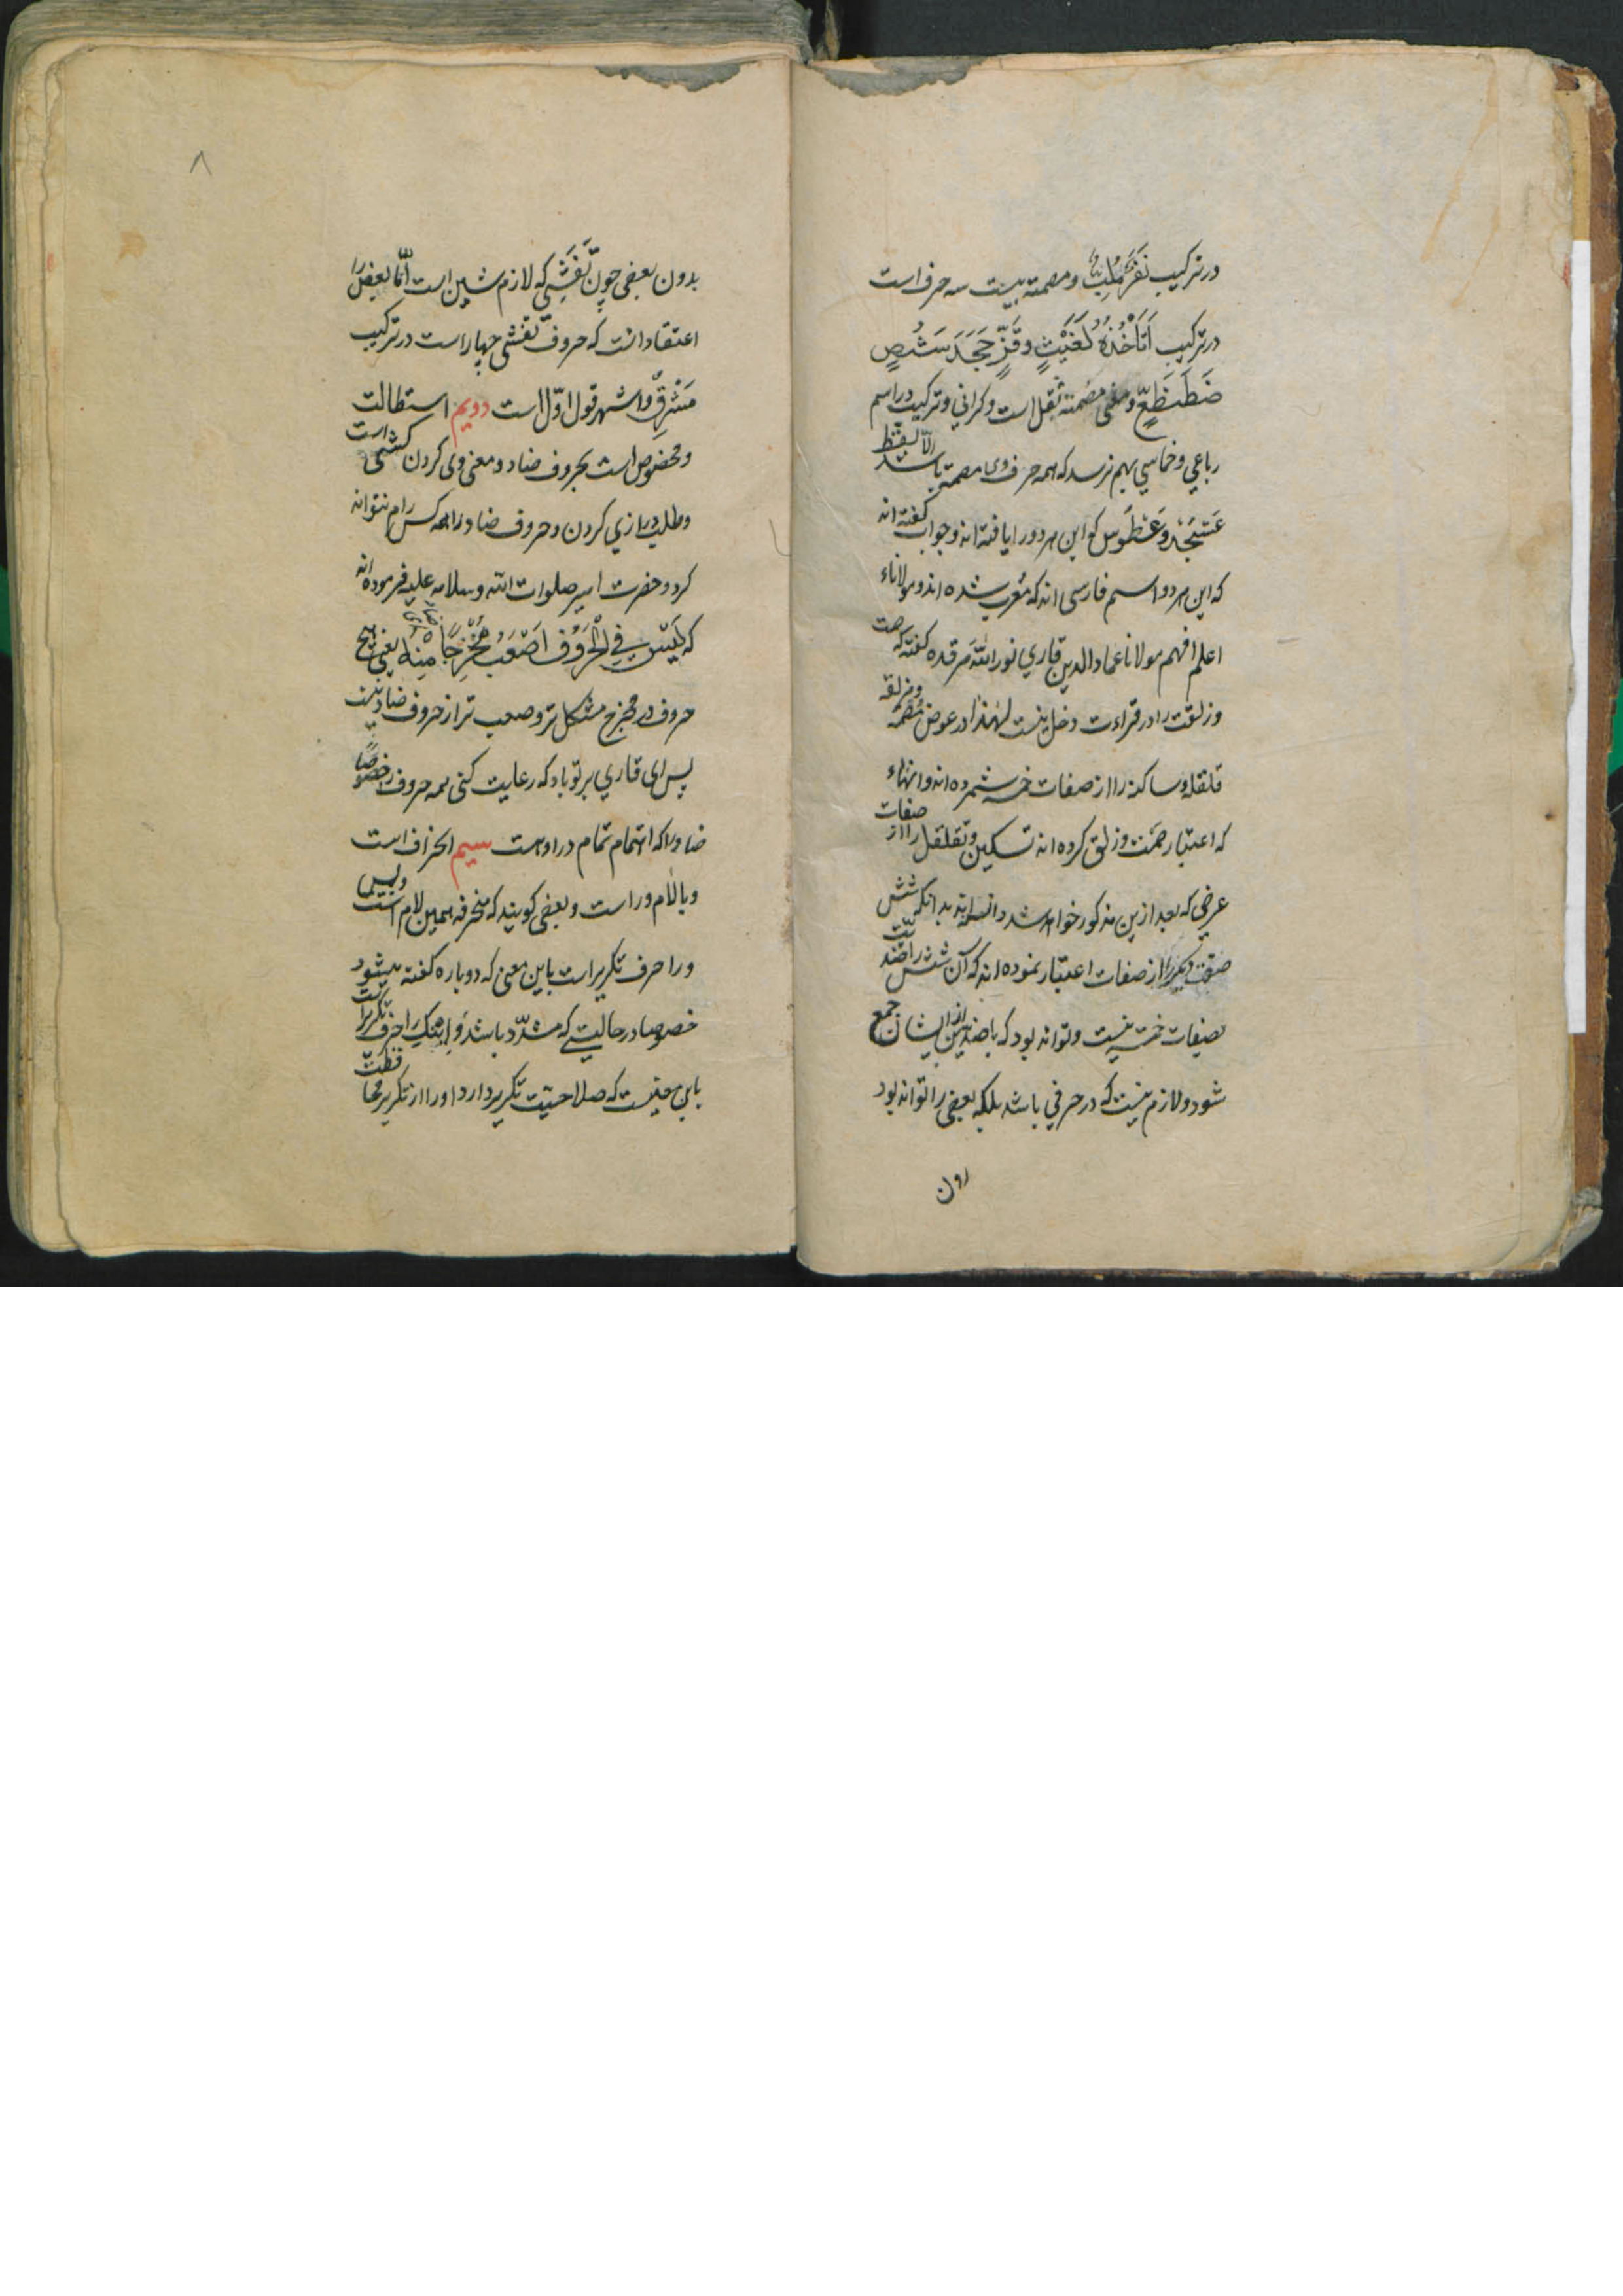 در ترکیب نَفَرَ مُلَبٍ و مصمته بیست سه حرف است
در ترکیب اَتَاْخُذُهُ كَغَيْثٍ وَقَزٍّ جَحَدَ سَشُصٍ
ضَطَظَعٍّ و معنی مصمته ثقل است و کرانی و ترکیب در اسم
رباعی و خماسی بهم نرسد که همه حرف وی مصمته باشد الّا لفظ
عَسْجَد و عَسْطُوس کو این هر دو را یافته اند و جواب کفته اند
که این هر دو اسم فارسی اند که مُعرب شده اند و مولاناء
اعلم افهم مولانا عماد الدین قاری نور اللّه مرقده کفته که صمت
و زلقت را در قراءت دخل نیست لهٰذا در عوض مُصمته و مزلقه
قلقله و ساکنه را از صفات خمسه شمرده اند و انهاء
که اعتبار صمت و زلق کرده اند تسکین و تقلقل را از صفات
عرضی که بعد ازین مذکور خواهد شد دانسته اند بدانکه شش
صفت دیکر را از صفات اعتبار نموده اند که آن شش را ضدّیّت
بصفات خمسه نیست و تواند بود که با ضدین ازایشان جمع
شود و لازم نیست که در حرفی باشد بلکه بعضی را تواند بود
بدون
٨
بدون بعضی چون تَفَشّی که لازم شین است امّا بعضی را
اعتقاد انست که حروف تفشی چهار است در ترکیب
مَشْرِقٌ و اشهر قول اوّل است دویم استطالت
و مخصوص است بحروف ضاد و معنی وی کردن کشی است
و طلب درازی کردن و حروف ضاد را همه کس رام نتواند
کرد و حضرت امیر صلوات اللّه و سلامه علیه فرموده اند
که لَيْسَ فِي الْحُرُوْفِ اَصْعَبُ مَخْرَجًا مِنْهُ یعنی هیچ
حروف در مخرج مشکل تر و صعب تر از حروف ضاد نیست
پس ای قاری بر تو باد که رعایت کنی همه حروف را خصوصًا
ضاد را که اهتمام تمام در او است سیم انحراف است
و بالام و را است و بعضی کویند که منحرفه همین لام است و بس
و را حرف تکریر است باین معنی که دو باره کفته میشود
خصوصا در حالیتے که مشدّد باشد و اینک را حرف تکریر است
باین معنیست که صلاحیّت تکریر دارد او را از تکریر محافظت